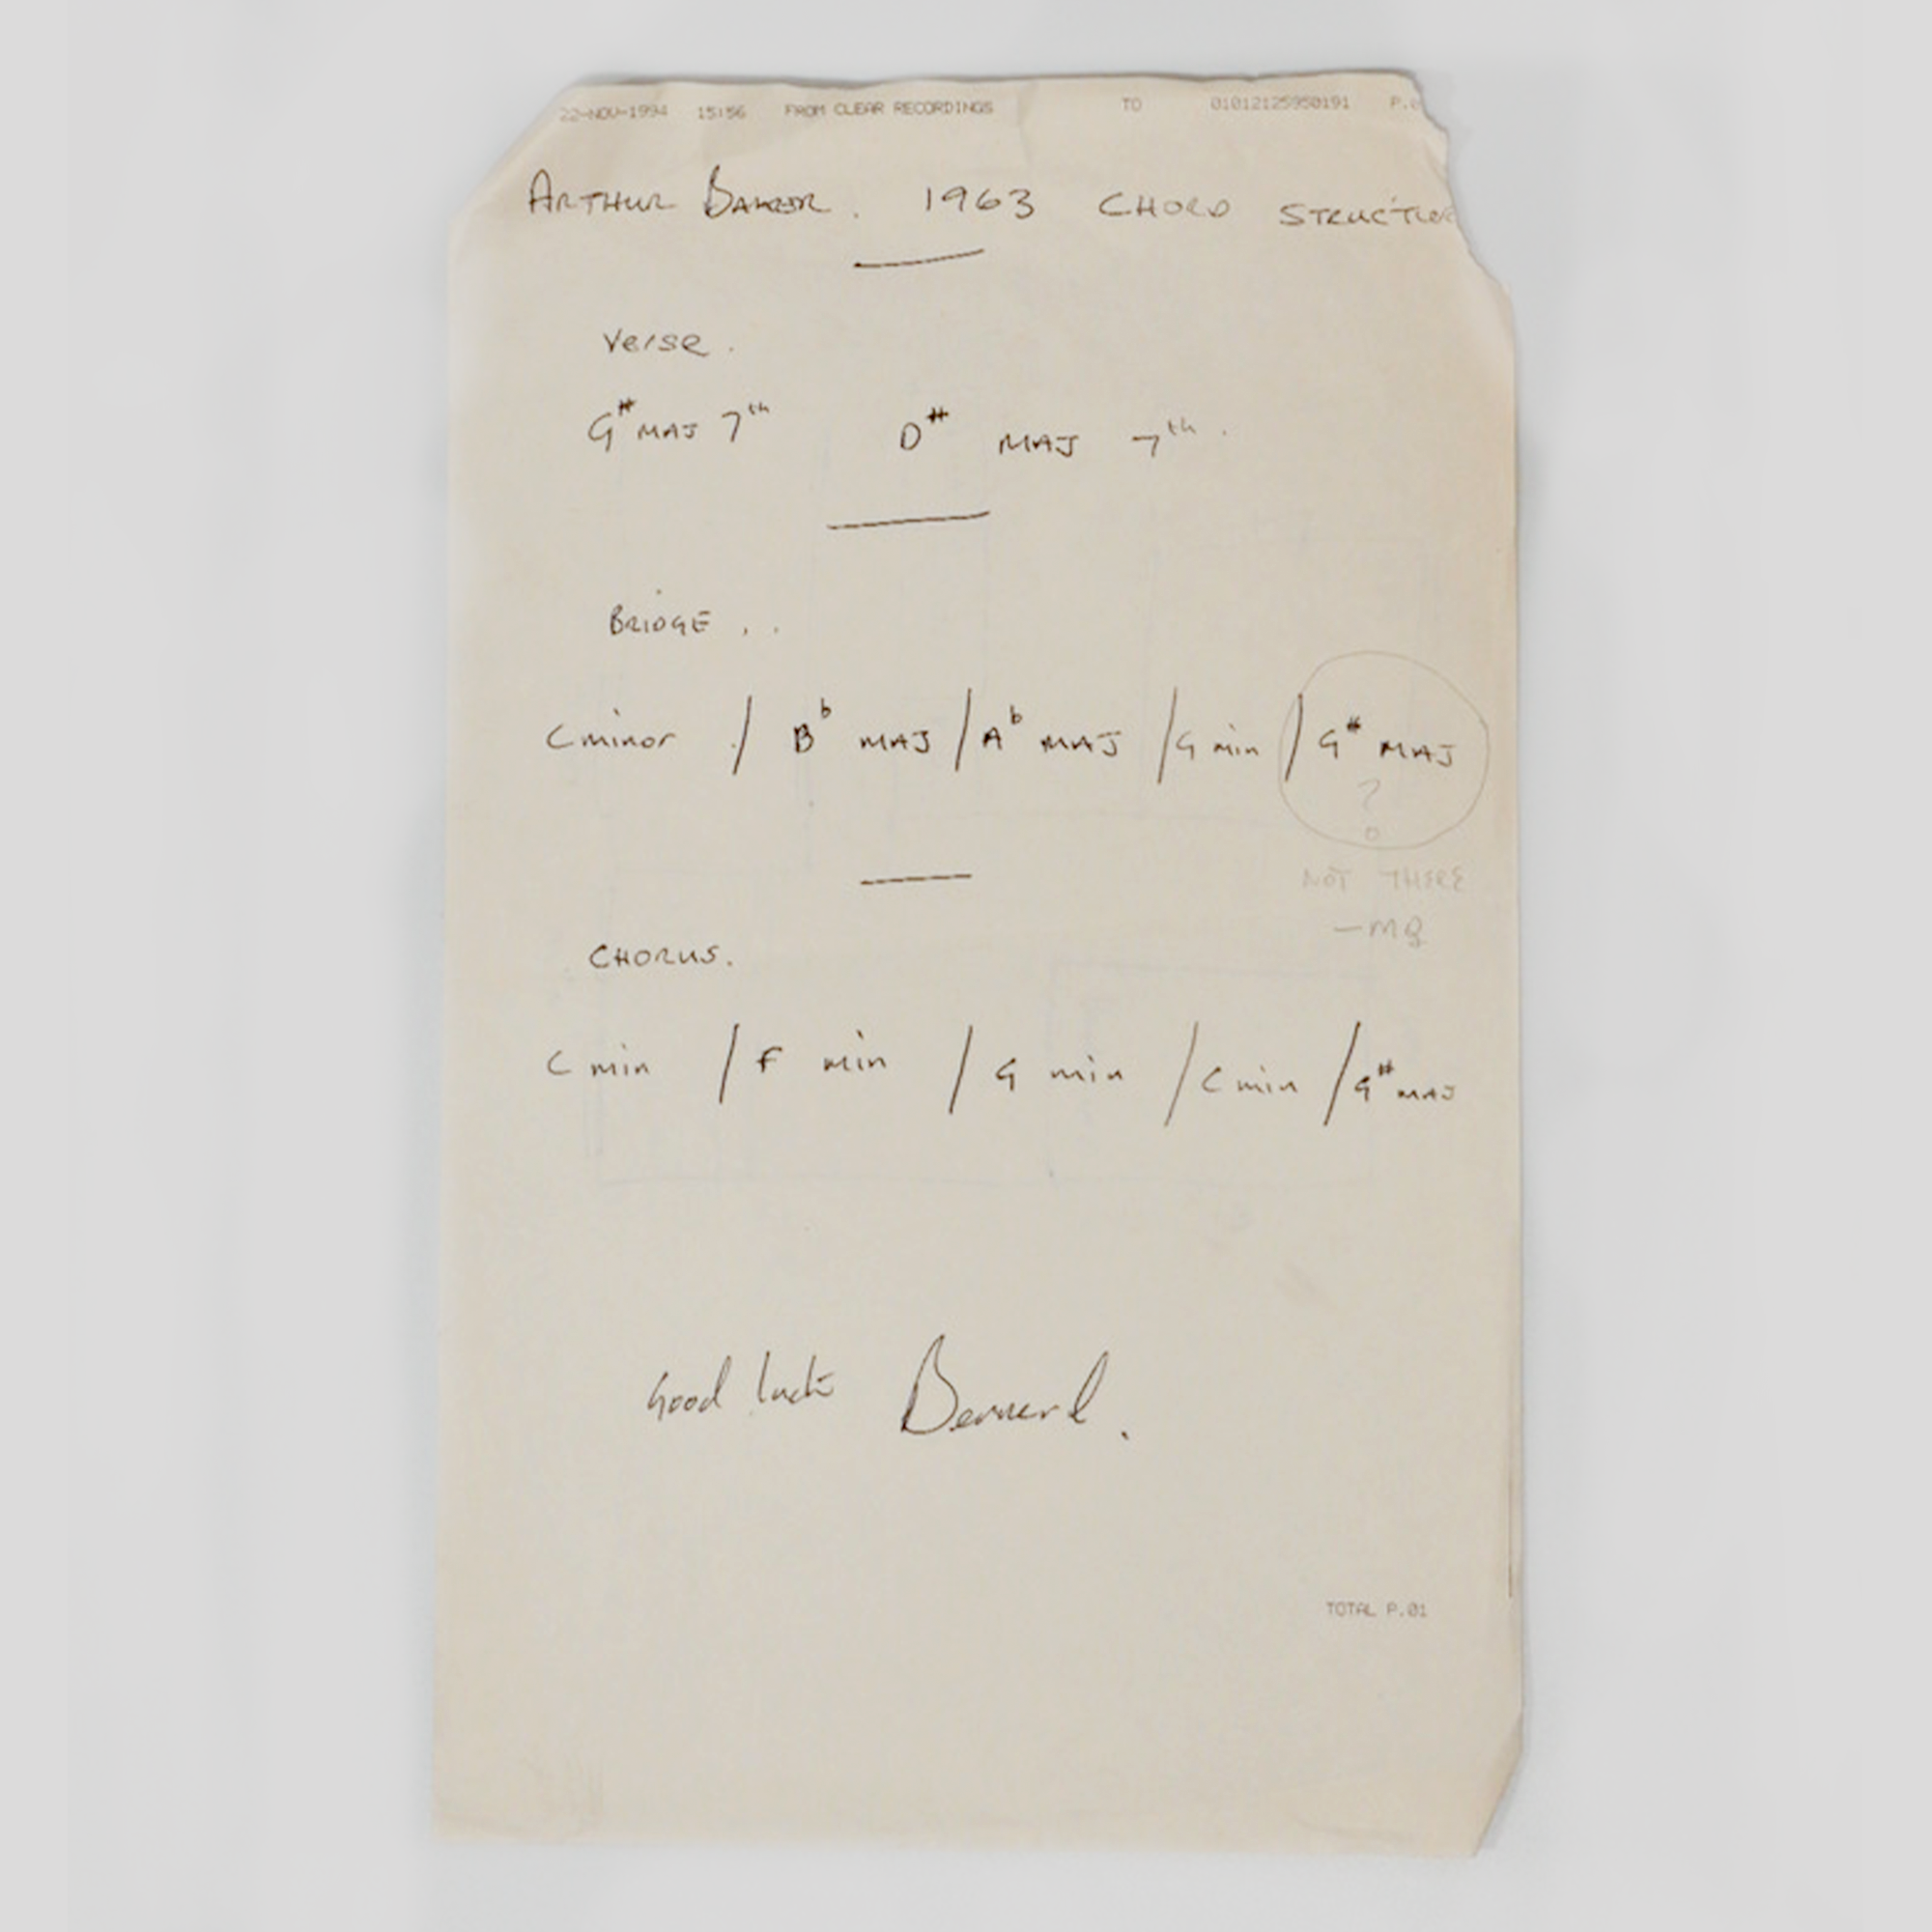 22-NOV-1994 15:56 FROM CLEAR RECORDINGS TO 01012125950191 P.0
ARTHUR BAKER. 1963 CHORD STRUCTURE
Verse.
G# MAJ 7th D# MAJ 7th.
BRIDGE..
C minor / Bb MAJ / Ab MAJ / G min / G# MAJ
?
NOT THERE
CHORUS.
C min / F min / G min / C min / G# MAJ
Good luck Bernard.
TOTAL P.01